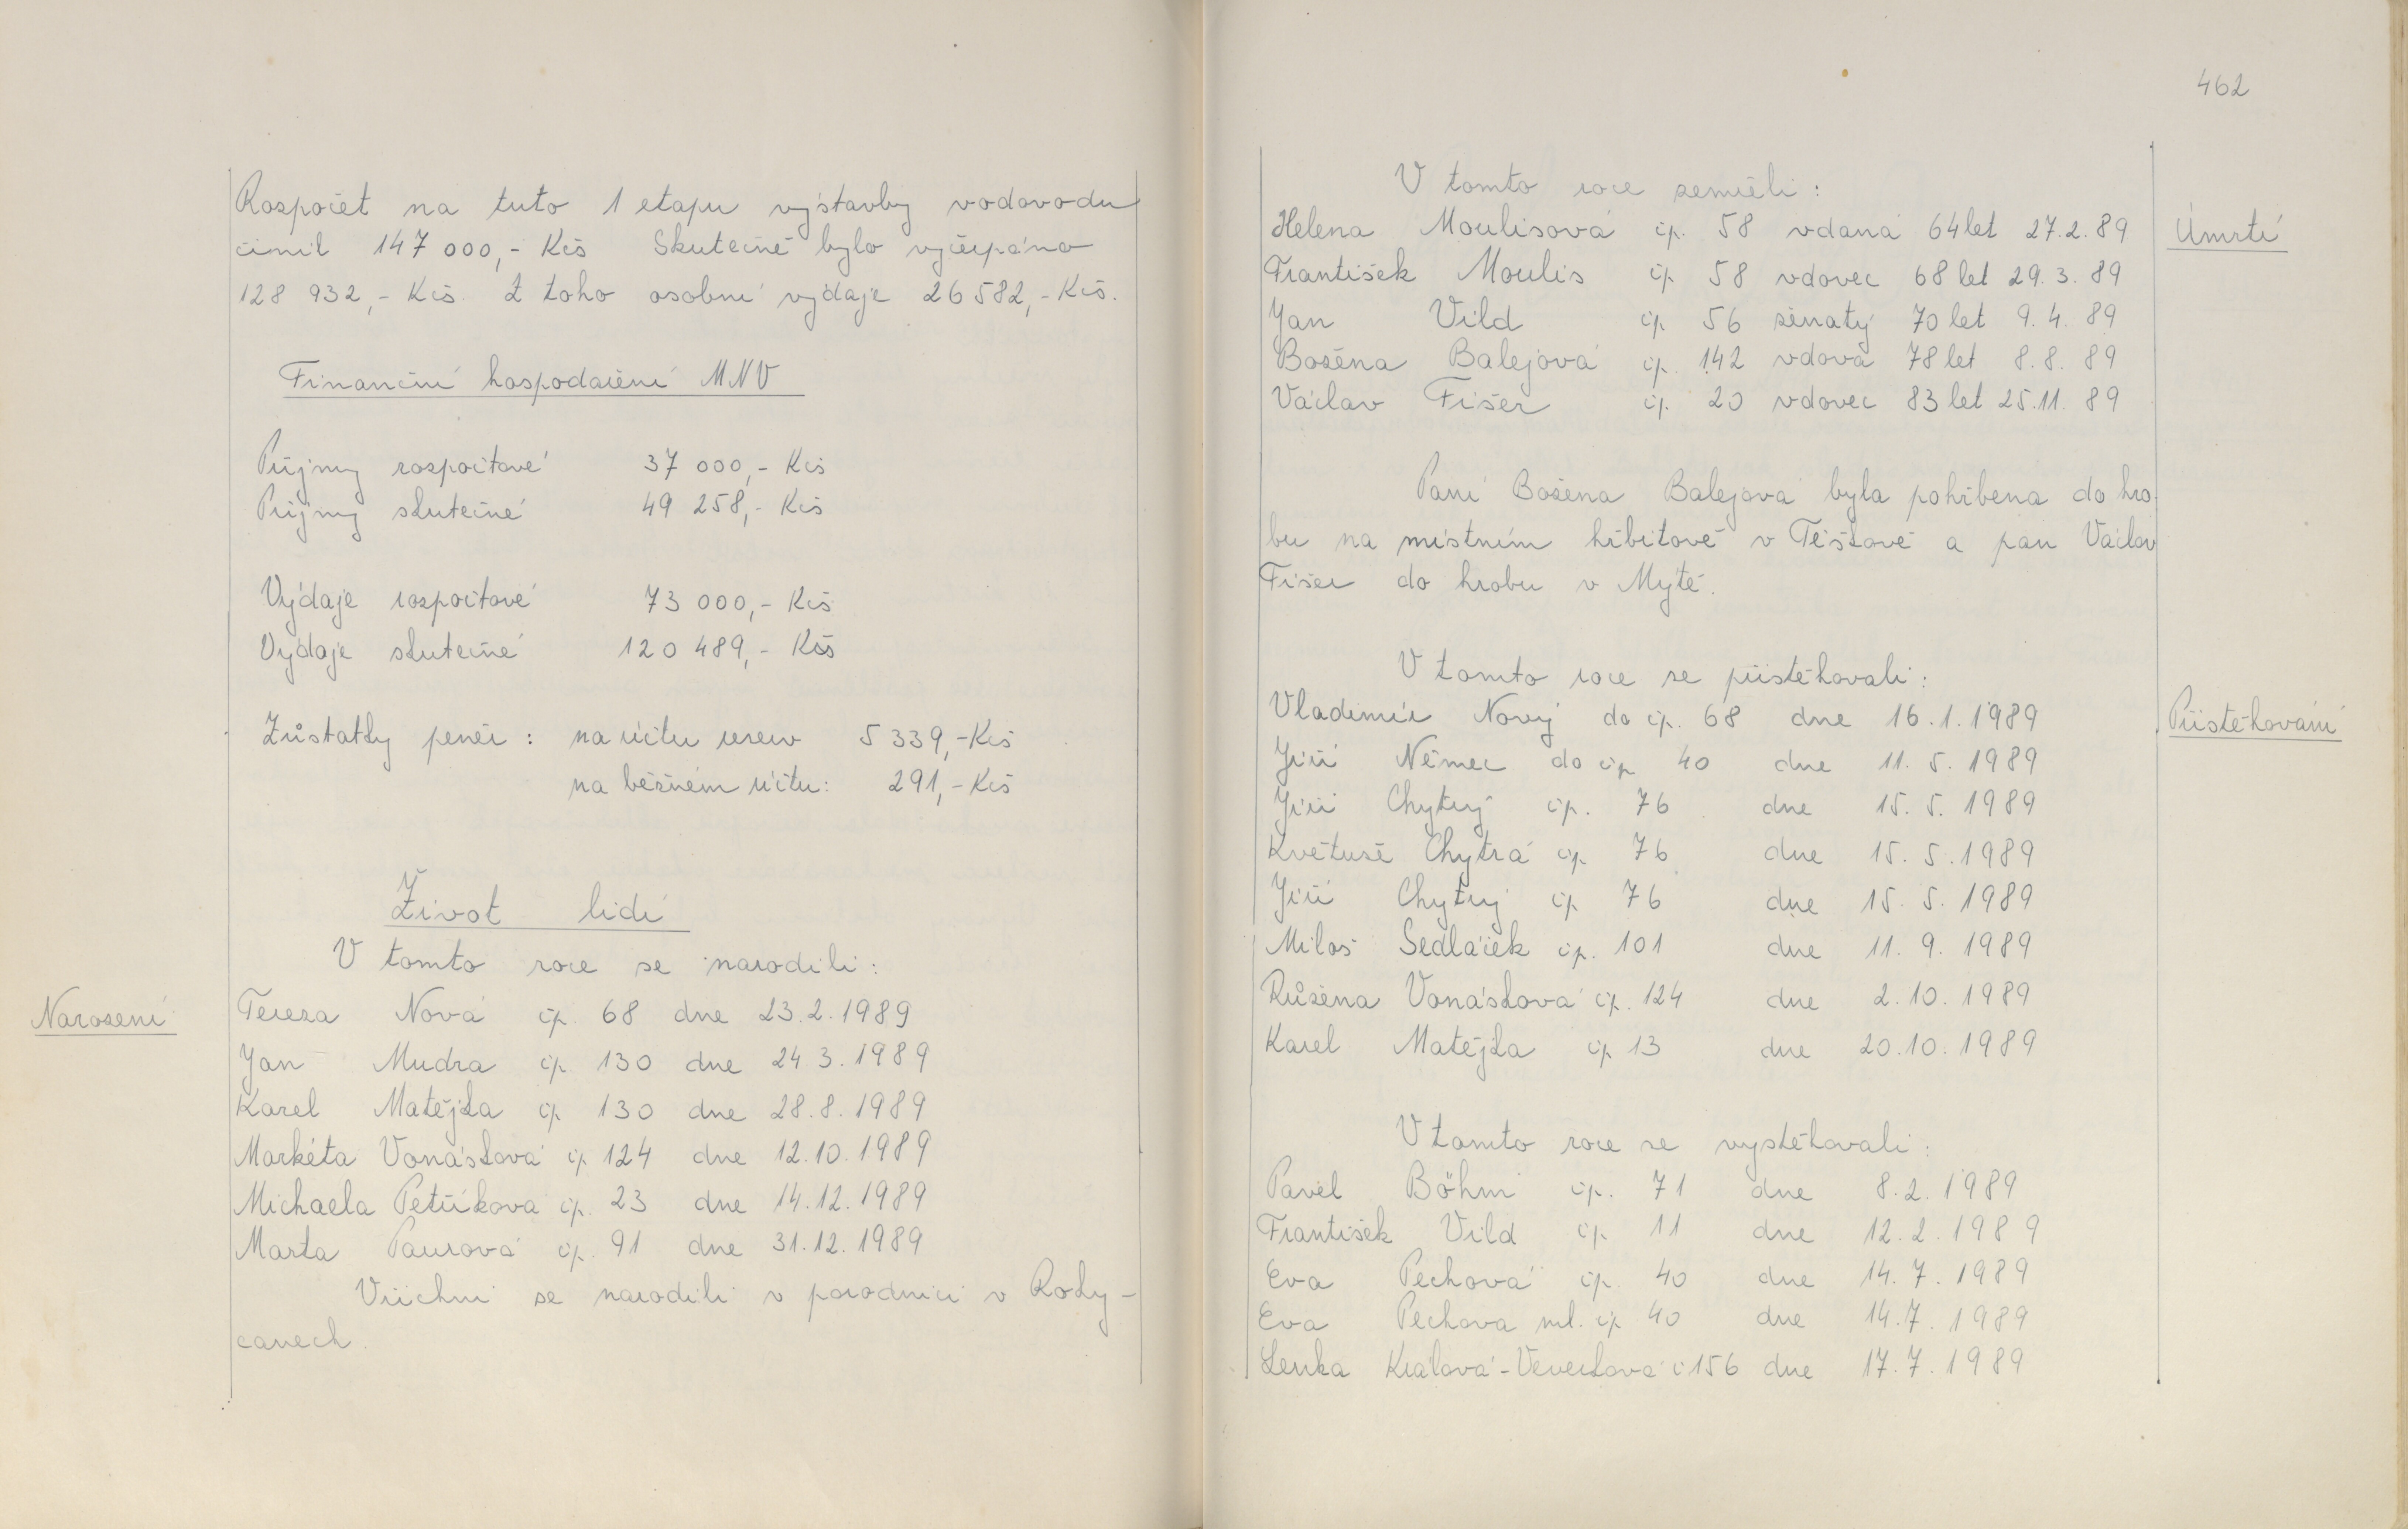 Rozpočet na tuto 1 etapu výstavby vodovodu
činil 147 000,- Kčs Skutečně bylo vyčerpáno
128 932,- Kčs. Z toho osobní výdaje 26 582,- Kčs.
Finanční hospodaření MNV
Příjmy rozpočtové 37 000,- Kčs
Příjmy skutečné 49 258,- Kčs
Výdaje rozpočtové 73 000,- Kčs
Výdaje skutečné 120 489,- Kčs
Zůstatky peněz : na účtu rezerv 5 339,- Kčs
na běžném účtu: 291,- Kčs
Život lidí
V tomto roce se narodili :
Narození
Tereza Nová čp. 68 dne 23.2.1989
Jan Mudra čp. 130 dne 24.3.1989
Karel Matějka čp. 130 dne 28.8.1989
Markéta Vonásková čp. 124 dne 12.10.1989
Michaela Petříková čp. 23 dne 14.12.1989
Marta Paurová čp. 91 dne 31.12.1989
Všichni se narodili v porodnici v Roky-
canech.
462
V tomto roce zemřeli :
Úmrtí
Helena Moulisová čp. 58 vdaná 64 let 27.2.89
František Moulis čp. 58 vdovec 68 let 29.3.89
Jan Vild čp. 56 ženatý 70 let 9.4.89
Božena Balejová čp. 142 vdova 78 let 8.8.89
Václav Fišer čp. 20 vdovec 83 let 25.11.89
Paní Božena Balejová byla pohřbena do hro-
bu na místním hřbitově v Těškově a pan Václav
Fišer do hrobu v Mýtě.
V tomto roce se přistěhovali :
Přistěhování
Vladimír Nový do čp. 68 dne 16.1.1989
Jiří Němec do čp. 40 dne 11.5.1989
Jiří Chytrý čp. 76 dne 15.5.1989
Květuše Chytrá čp. 76 dne 15.5.1989
Jiří Chytrý čp. 76 dne 15.5.1989
Miloš Sedláček čp. 101 dne 11.9.1989
Růžena Vonásková čp. 124 dne 2.10.1989
Karel Matějka čp. 13 dne 20.10.1989
V tomto roce se vystěhovali :
Pavel Böhm čp. 71 dne 8.2.1989
František Vild čp. 11 dne 12.2.1989
Eva Pechová čp. 40 dne 14.7.1989
Eva Pechová ml. čp. 40 dne 14.7.1989
Lenka Králová-Veverková č 156 dne 17.7.1989